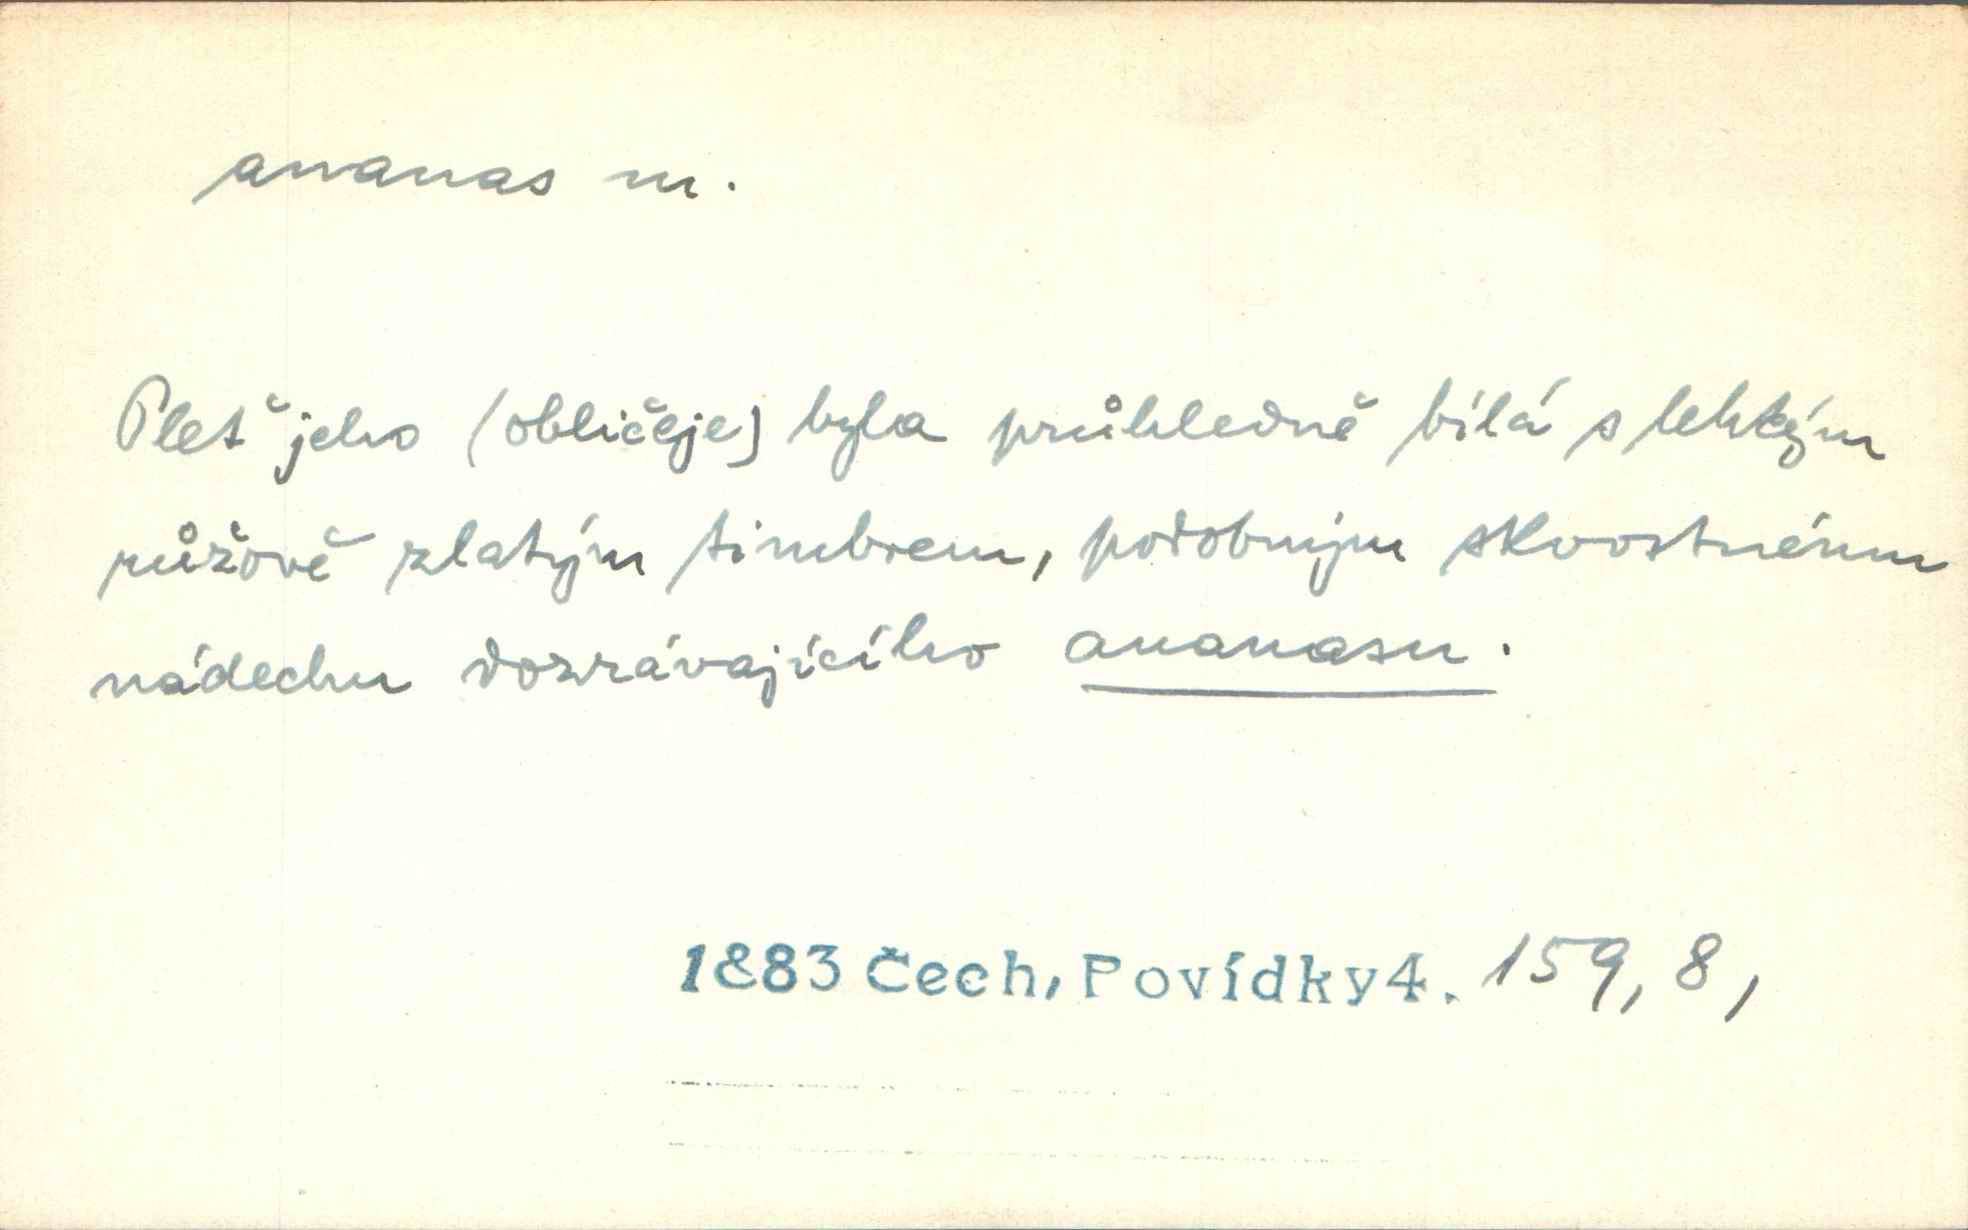 ananas m.
Pleť jeho (obličeje) byla průhledně bílá s lehkým
růžově zlatým timbrem, podobným skvostnému
nádechu dozrávajícího ananasu.
1883 Čech, Povídky 4. 159, 8,